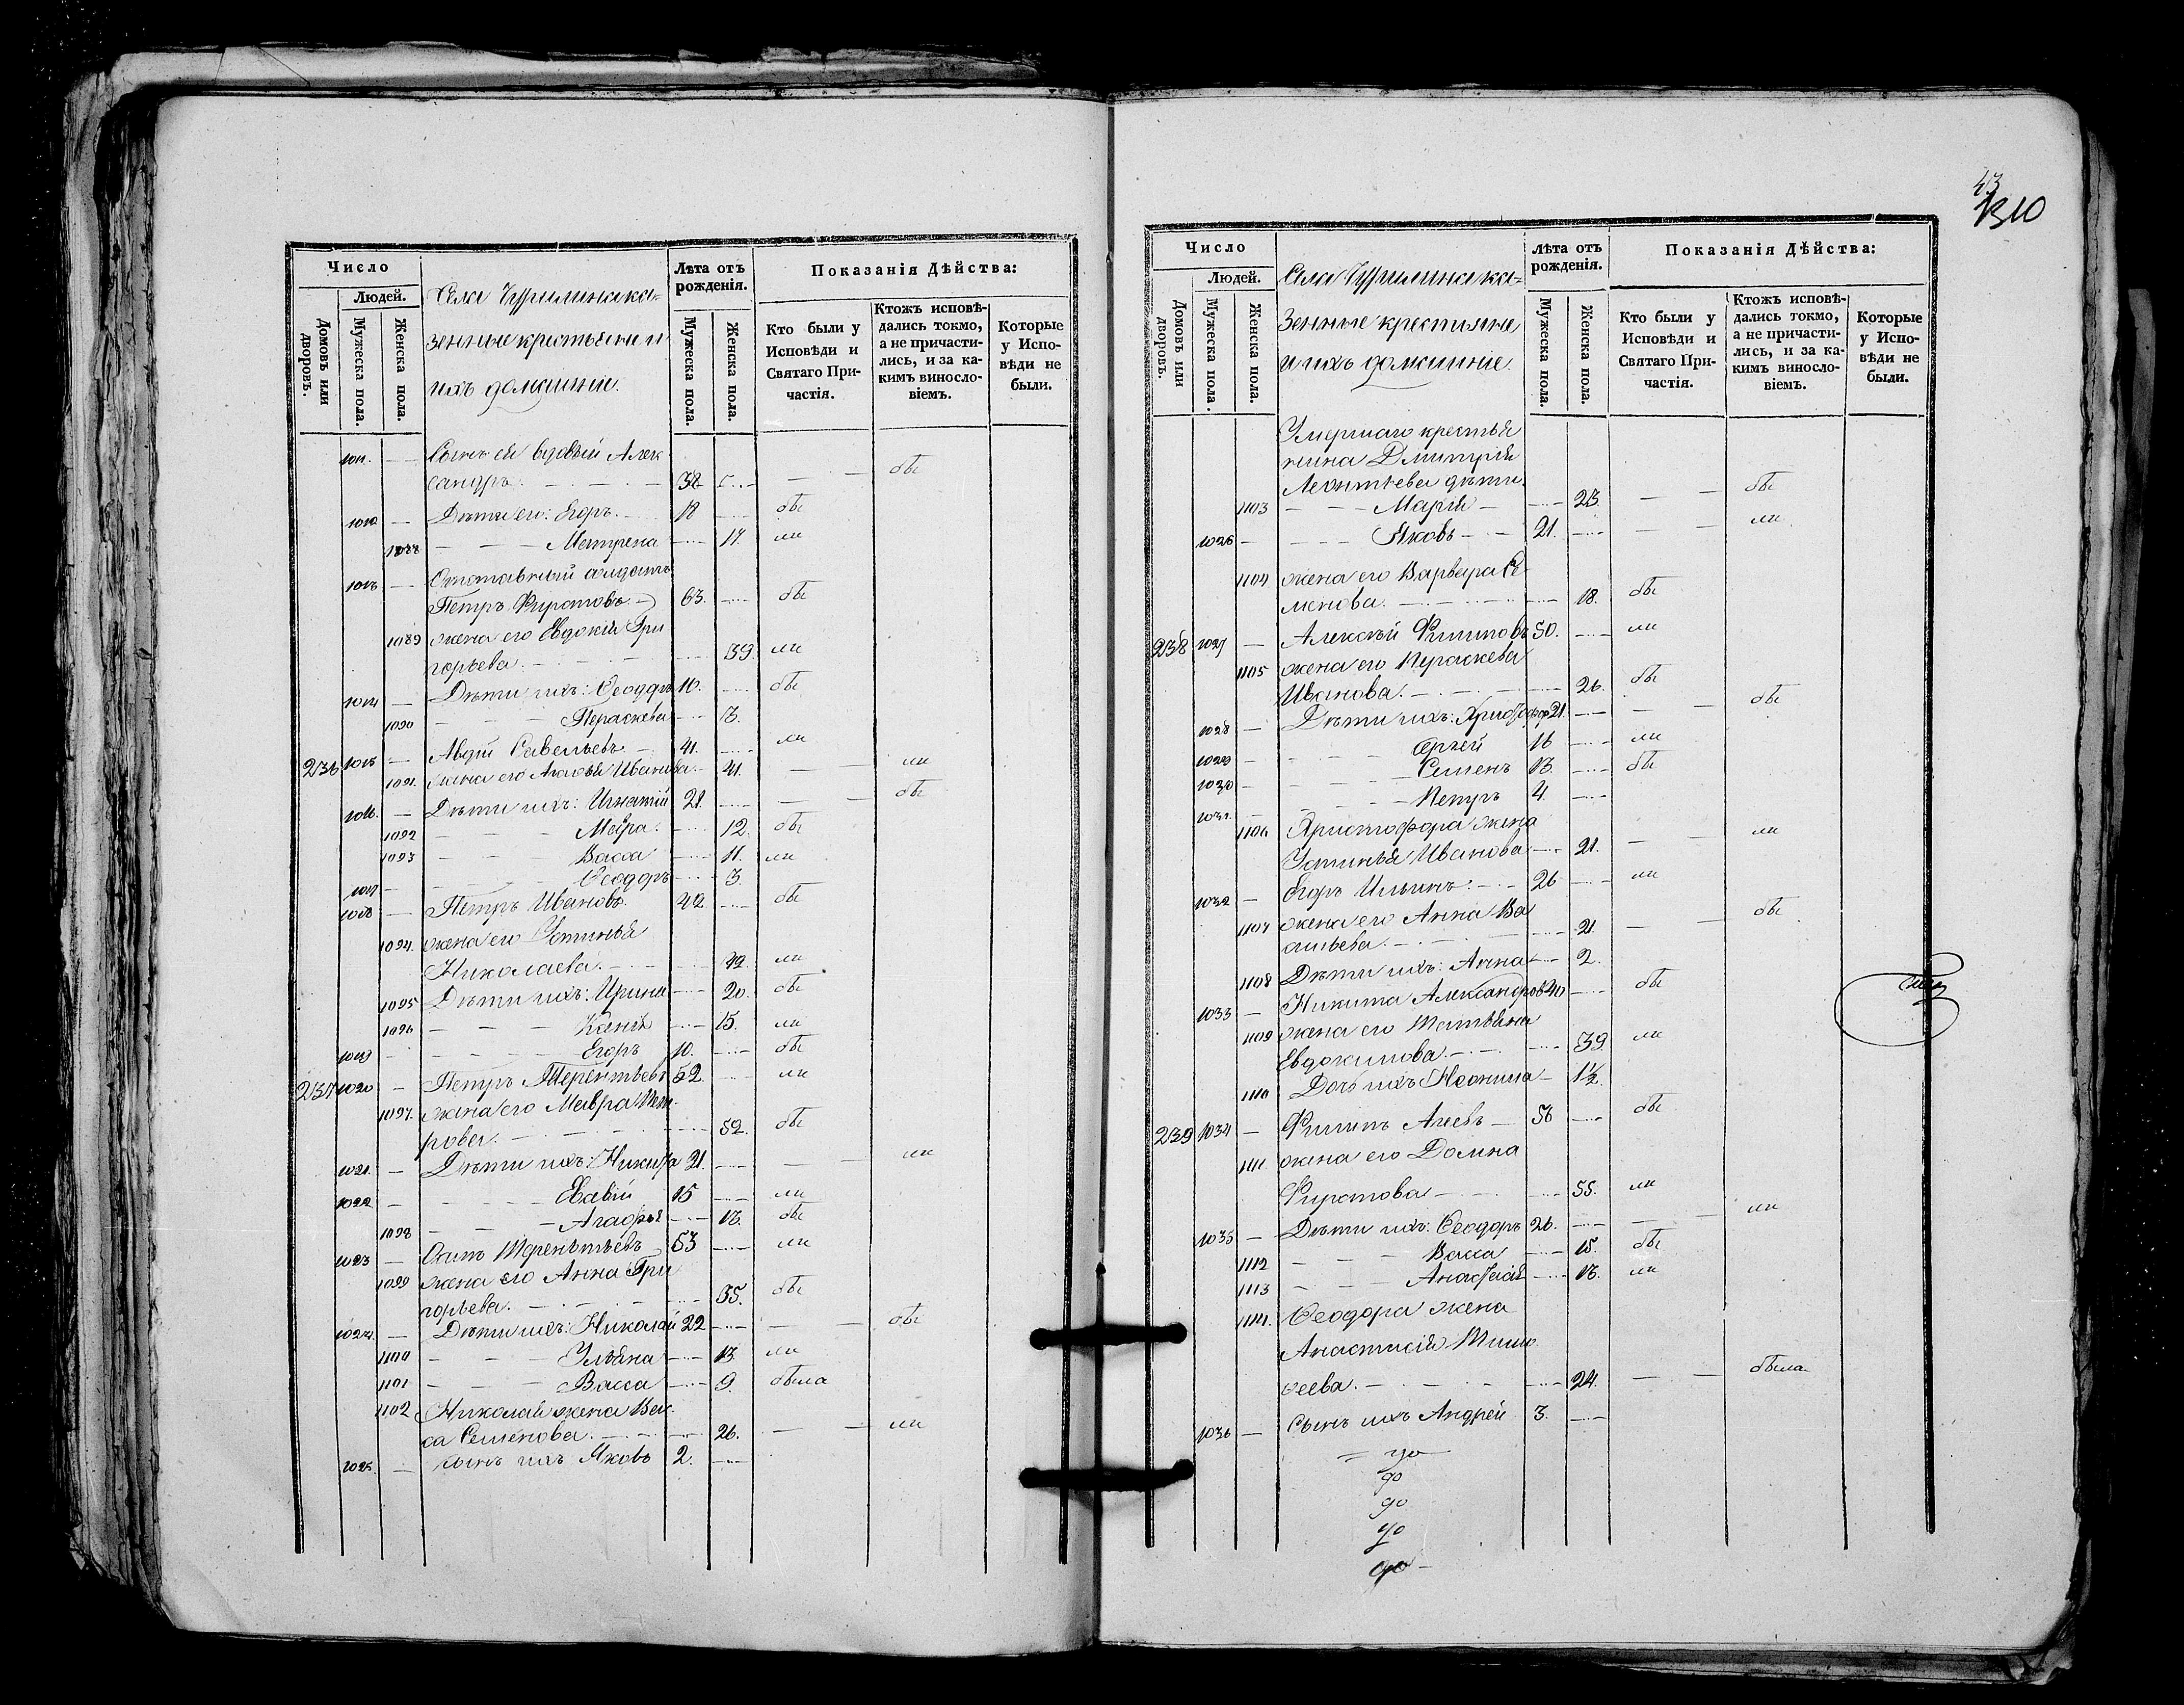 Число
Людей.
Домовъ или дворовъ.
Мужеска пола.
Женска пола.
Села Чурилина ка-
зенные крестьяне и
ихъ домашніе.
Лѣта отъ рожденія.
Мужеска пола.
Женска пола.
Показанія Дѣйства:
Кто были у Исповѣди и Святаго Причастія.
Ктожъ исповѣдались токмо, а не причастились, и за какимъ винословіемъ.
Которые у Исповѣди не были.
1011. — Сынъ ея вдовый Алек
сандръ 38 бы
1012 — Дѣти его: Егоръ. 18 бы
1088 Матрена 17. ли
1013 — Отставный солдатъ
Петръ Фирстовъ 63. бы
1089 жена его Евдокія Гри
горьева. 39. ли
1014 — Дѣти ихъ: Ѳеодоръ 16. бы
1090 Параскева 13.
236 1015 — Авдій Савельевъ 41. ли
1091. жена его Иванова 41. ли
1016. — Дѣти ихъ: Игнатій 21. бы
1092 Мавра. 12. бы
1093 Васса 11. ли
1017 — Ѳеодоръ 3.
1018 — Петръ Ивановъ. 42 бы
1094. жена его Устинья
Николаева. 42. ли
1095 Дѣти ихъ: Ирина 20. бы
1096 15. ли
1019 Егоръ 10. бы
237 1020 — Петръ Терентьевъ 52. ли
1097. жена его Мавра Пет-
рова. 52. бы
1021. — Дѣти ихъ: Никита 21. ли
1022 15 ли
1098 Агафья 13. бы
1023 — Терентьевъ 53 ли
1099 жена его Анна Гри
горьева. 35. бы
1024. — Дѣти ихъ: Николай 22 бы
1100 Ульяна 13. ли
1101 Васса 9. была
1102 Николая жена Вас-
са Семенова. 26. ли
1025. — сынъ ихъ Яковъ 2.
43
1310
Число
Людей.
Домовъ или дворовъ.
Мужеска пола.
Женска пола.
Села Чурилина ка-
зенные крестьяне
и ихъ домашніе.
Лѣта отъ рожденія.
Мужеска пола.
Женска пола.
Показанія Дѣйства:
Кто были у Исповѣди и Святаго Причастія.
Ктожъ исповѣдались токмо, а не причастились, и за какимъ винословіемъ.
Которые у Исповѣди не были.
Умершаго крестья
нина Дмитрія
Леонтьева дѣти.
1103 Марія 23. бы
1026 — Яковъ 21. ли
1104 жена его Варвара Се-
менова. 18. бы
238 1027 — Алексѣй Филиповъ 50. ли
1105 жена его Параскева
Иванова. 26. бы
1028 — Дѣти ихъ: Христофор 21. бы
1029 — Сергѣй 16 ли
1030 — Семенъ 13. бы
1031. — Петръ 4.
1106 Христофора жена
Устинья Иванова 21. ли
1032 — Егоръ Ильинъ. 26 ли
1107 жена его Анна Ва
сильева. 21. бы
1108 Дѣти ихъ: Анна 2.
1033 — Никита Александров 40 бы
1109 жена его Татьяна
Евдокимова. 39. ли
1110 Дочь ихъ Неонила 1½.
239 1034 — Филипъ Агеевъ 56 бы
1111 жена его Домна
Фирстова 55. ли
1035 — Дѣти ихъ: Ѳеодоръ 26. ли
1112 Васса 15. бы
1113 Анастасія 13. ли
1114. Ѳеодора жена
Анастасія Тимо
ѳеева. 24. была
1036 — Сынъ ихъ Андрей 3.